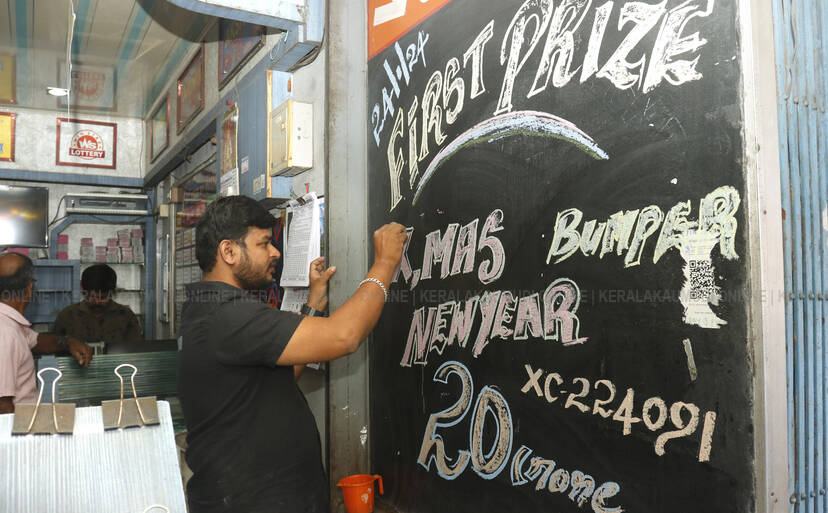 24.1.24
FIRST PRIZE
X,MAS BUMPER
NEW YEAR
XC-224091
20 (none
WS
LOTTERY
ONLINE | KERALAKAUMUDI ONLINE | KERALAKAUMUDI ONLINE